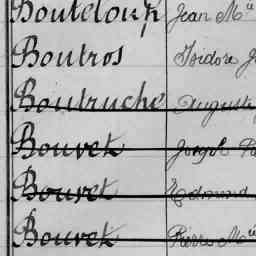 Bouteloup Jean Mie
Boutros Isidore J
Boutruche Auguste
Bouvet Joseph
Bouvet Edmond
Bouvet Pierre Mie